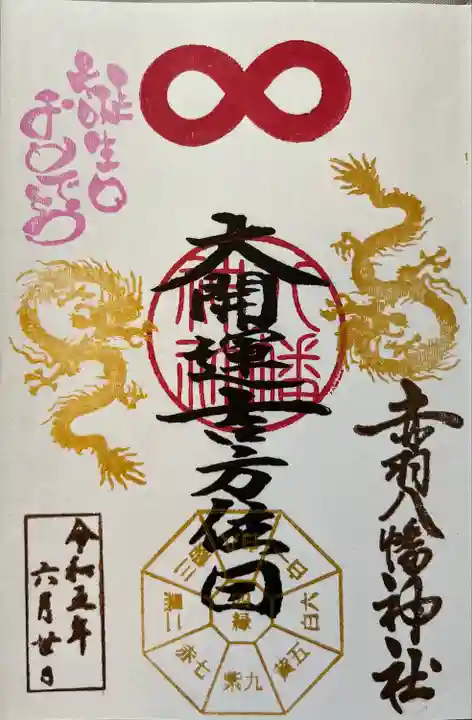 お誕生日
おめでとう
大開運吉方位日
赤羽八幡神社
八幡
神社
令和五年
六月廿日
三碧
二黒
七赤
九紫
五黄
六白
四緑